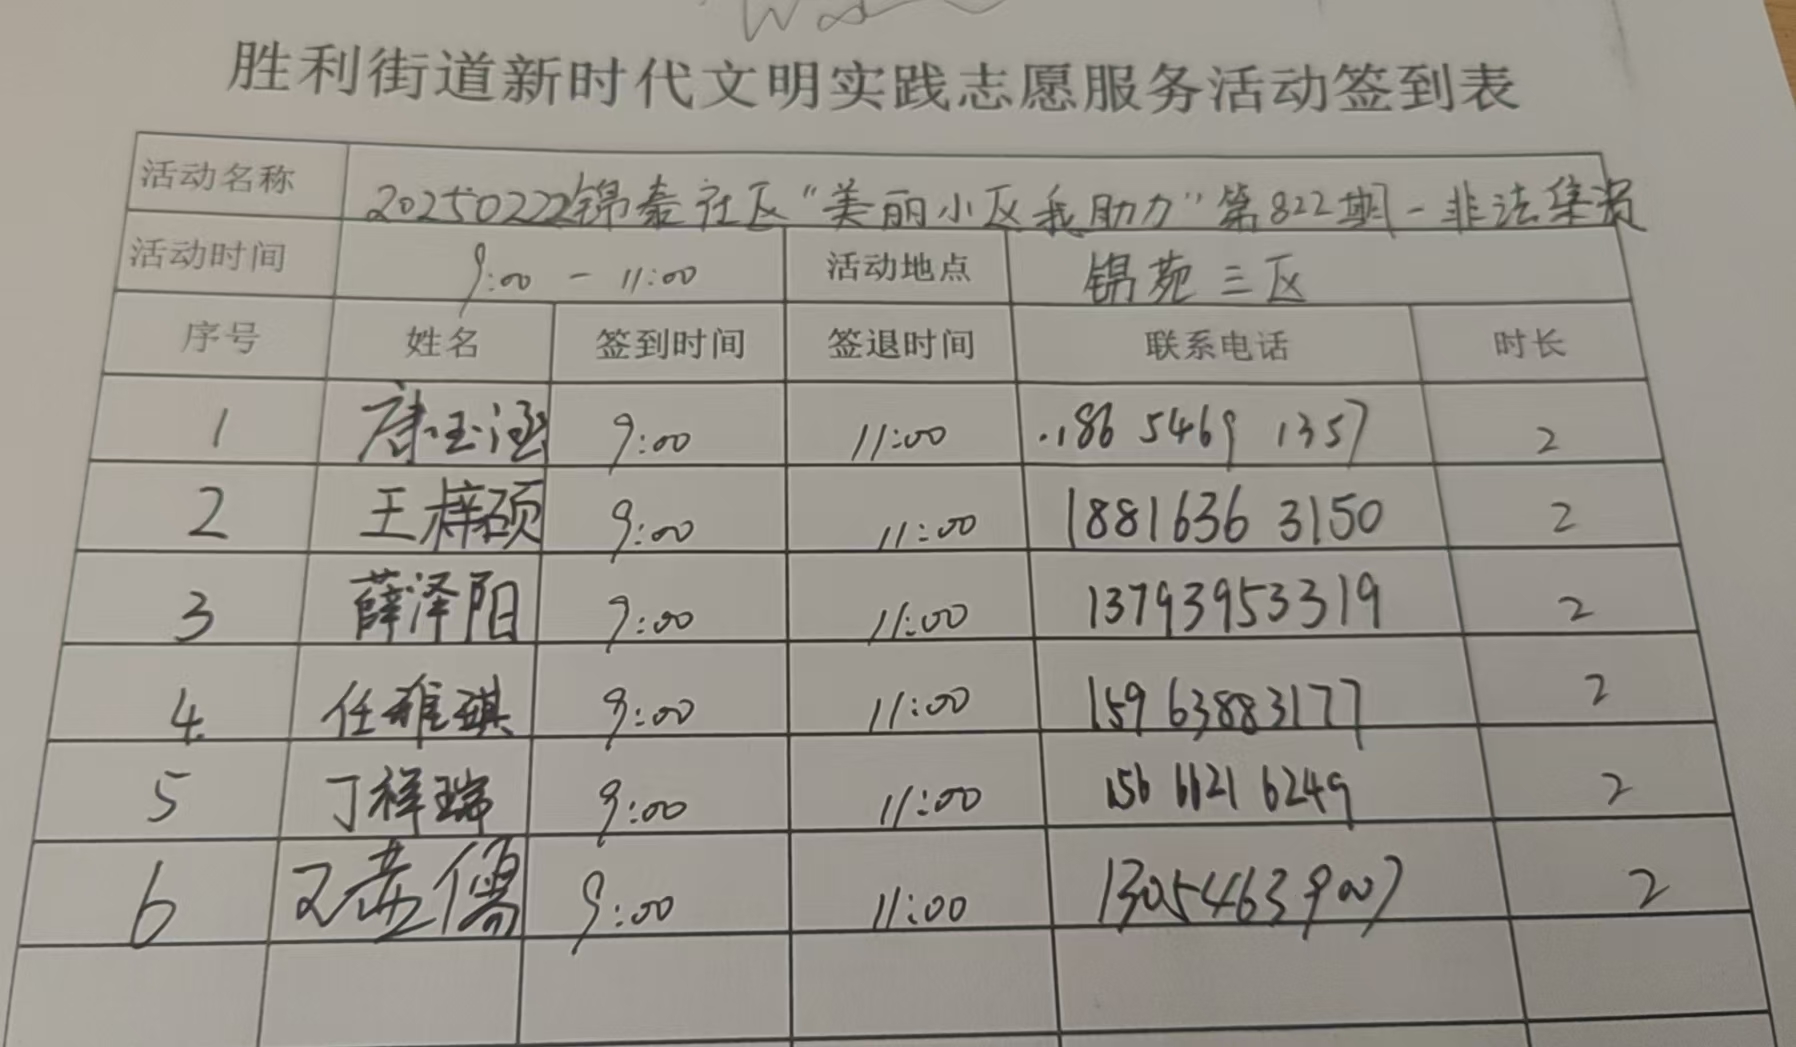 胜利街道新时代文明实践志愿服务活动签到表
活动名称 20250222锦泰社区“美丽小区我助力”第822期-非法集资
活动时间 9:00 - 11:00 活动地点 锦苑三区
序号 姓名 签到时间 签退时间 联系电话 时长
1 唐玉涵 9:00 11:00 186 5469 1357 2
2 王梓硕 9:00 11:00 1881636 3150 2
3 薛泽阳 9:00 11:00 13793953319 2
4 任雅琪 9:00 11:00 159 63883177 2
5 丁祥瑞 9:00 11:00 156 6621 6249 2
6 9:00 11:00 13054639007 2